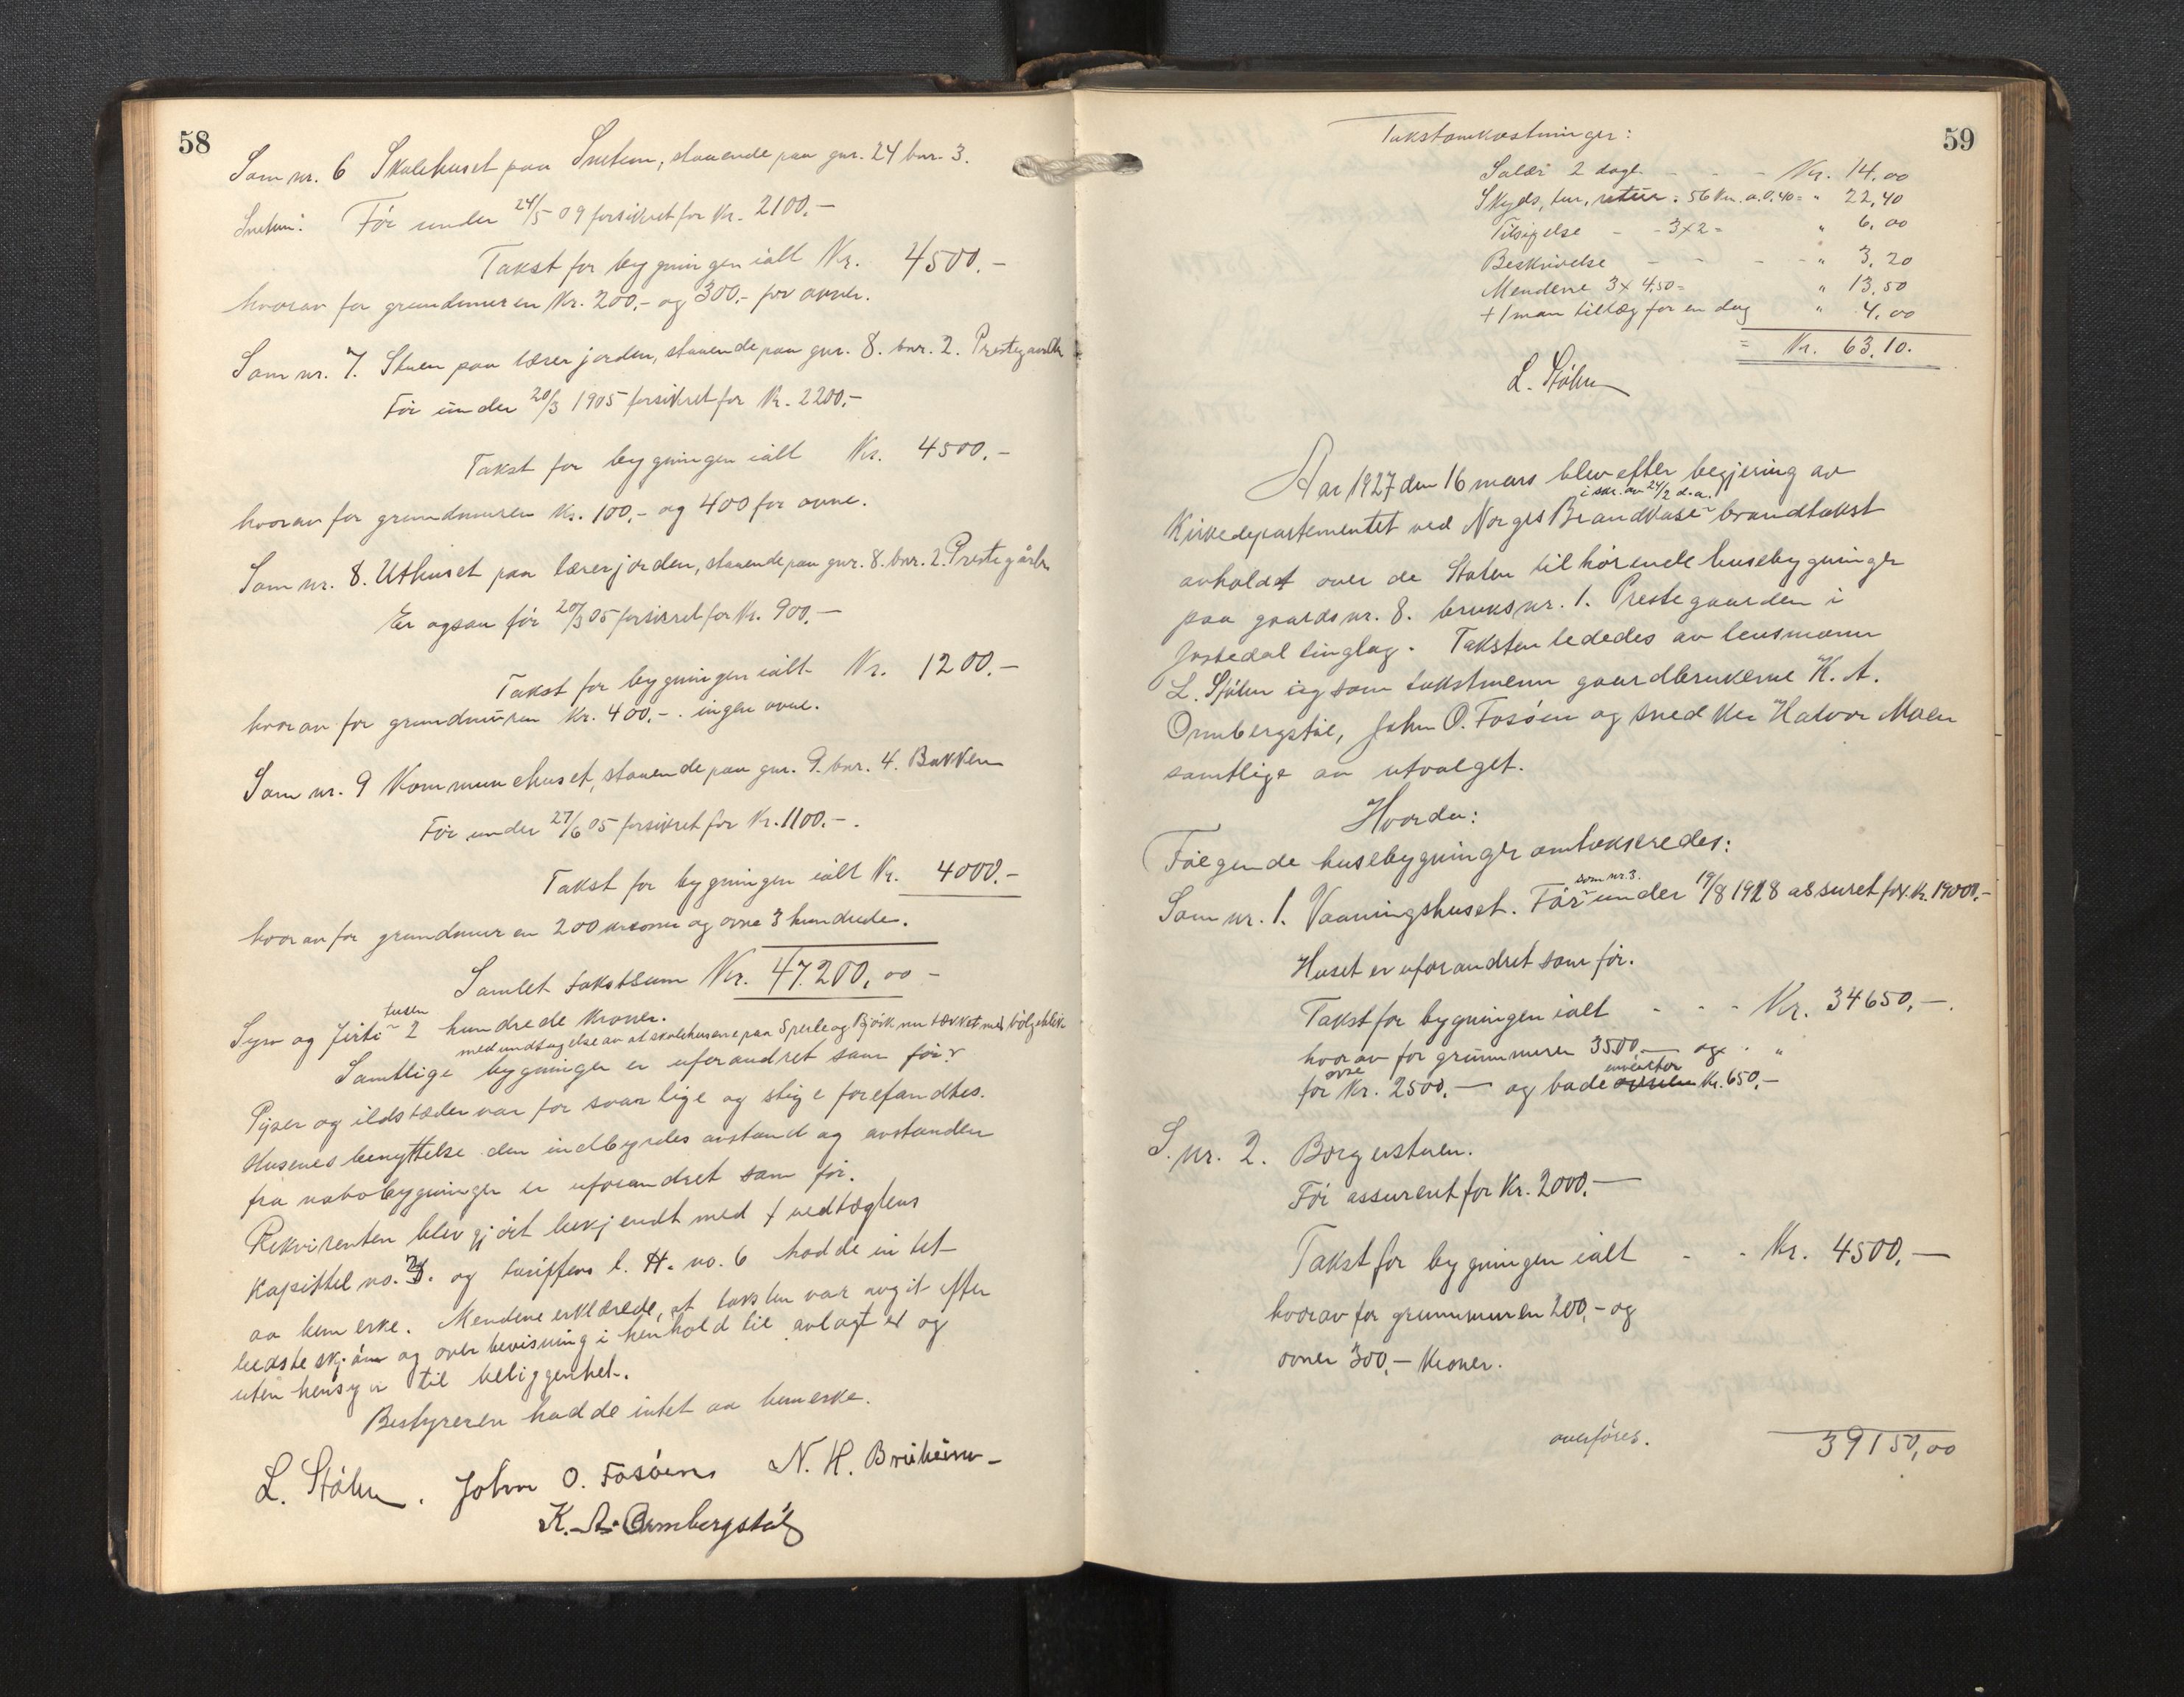 58
Som nr. 6 Skolehuset paa Snetun, staaende paa gnr. 24 bnr. 3.
Snetun. Før under 24/5 09 forsikret for Kr. 2100,-
Takst for bygningen ialt Kr. 4500.-
hvorav for grundmuren Kr. 200,- og 300,- for ovner.
Som nr. 7. Stuen paa lærerjorden, staaende paa gnr. 8. bnr. 2. Prestegaarden
Før under 20/3 1905 forsikret for Kr. 2200,-
Takst for bygningen ialt Kr. 4500.-
hvorav for grundmuren Kr. 100,- og 400 for ovne.
Som nr. 8. Uthuset paa lærerjorden, staaende paa gnr. 8. bnr. 2. Prestegården
Er ogsaa før 20/3 05 forsikret for Kr. 900,-
Takst for bygningen ialt Kr. 1200.-
hvorav for grundmuren Kr. 400,-. ingen ovne.
Som nr. 9 Kommunehuset, staaende paa gnr. 9. bnr. 4. Bakken
Før under 27/6 05 forsikret for Kr. 1100.-.
Takst for bygningen ialt Kr. 4000.-
hvorav for grundmuren 200 kroner og ovne 3 hundrede.
Samlet takstsum Kr. 47.200,00 -
Syv og firti tusen 2 hundrede kroner.
med undtagelse av at skolehusene paa Sperle og Bjørk nu tækket med bølgeblik
Samtlige bygninger er uforandret som før.
Piper og ildstæder var forsvarlige og stige forefandtes.
Husenes benyttelse den indbyrdes avstand og avstanden
fra nabobygninger er uforandret som før.
Rekvirenten blev gjort bekjendt med vedtægtens
kapittel no. 3. og tariffens l. H. no. 6 hadde intet
aa bemerke. Mendene erklærede, at taksten var avgit efter
bedste skjøn og overbevisning i henhold til avlagt ed og
uten hensyn til beliggenhet.
Bestyreren hadde intet aa bemerke.
L. Støhn. John O. Fosøen N. H. Breiheim-
K. A. Ormbergstøl
59
Takstomkostninger:
Salær 2 dage - - - Kr. 14,00
Skyds, tur, retur = 56 km. a. 0,40 = " 22,40
Tilsigelse - - 3x2 = " 6,00
Beskrivelse - - - - " 3,20
Mendene 3x 4,50 = " 13,50
+ 1 man tillæg for en dag " 4,00
= Kr. 63,10.
L. Støhn
Aar 1927 den 16 mars blev efter begjering av
i skr. av 24/2 d.a.
Kirkedepartementet ved Norges Brandkasse brandtakst
avholdt over de Staten tilhørende husebygninger
paa gaardsnr. 8. bruksnr. 1. Prestegaarden i
Jostedal tinglag. Taksten lededes av lensmann
L. Støhn og som takstmenn gaardbrukerne K. A.
Ormbergstøl, John O. Fosøen og snedker Halvor Moen
samtlige av utvalget.
Hvorda:
Følgende husebygninger omtakseredes:
som nr. 3.
Som nr. 1. Vaaningshuset. Før under 19/8 1918 assuret for Kr. 19000,-
Huset er uforandret som før.
Takst for bygningen ialt - - - Kr. 34650,-.
hvorav for grunmuren 3500,- og "
ovne
for Kr. 2500,- og bade inventar Kr. 650,-
S. nr. 2. Borgerstuen.
Før assurert for Kr. 2000,-
Takst for bygningen ialt - - Kr. 4500,-
hvorav for grunmuren 200,- og
ovner 300,- kroner.
overføres. 39150,00